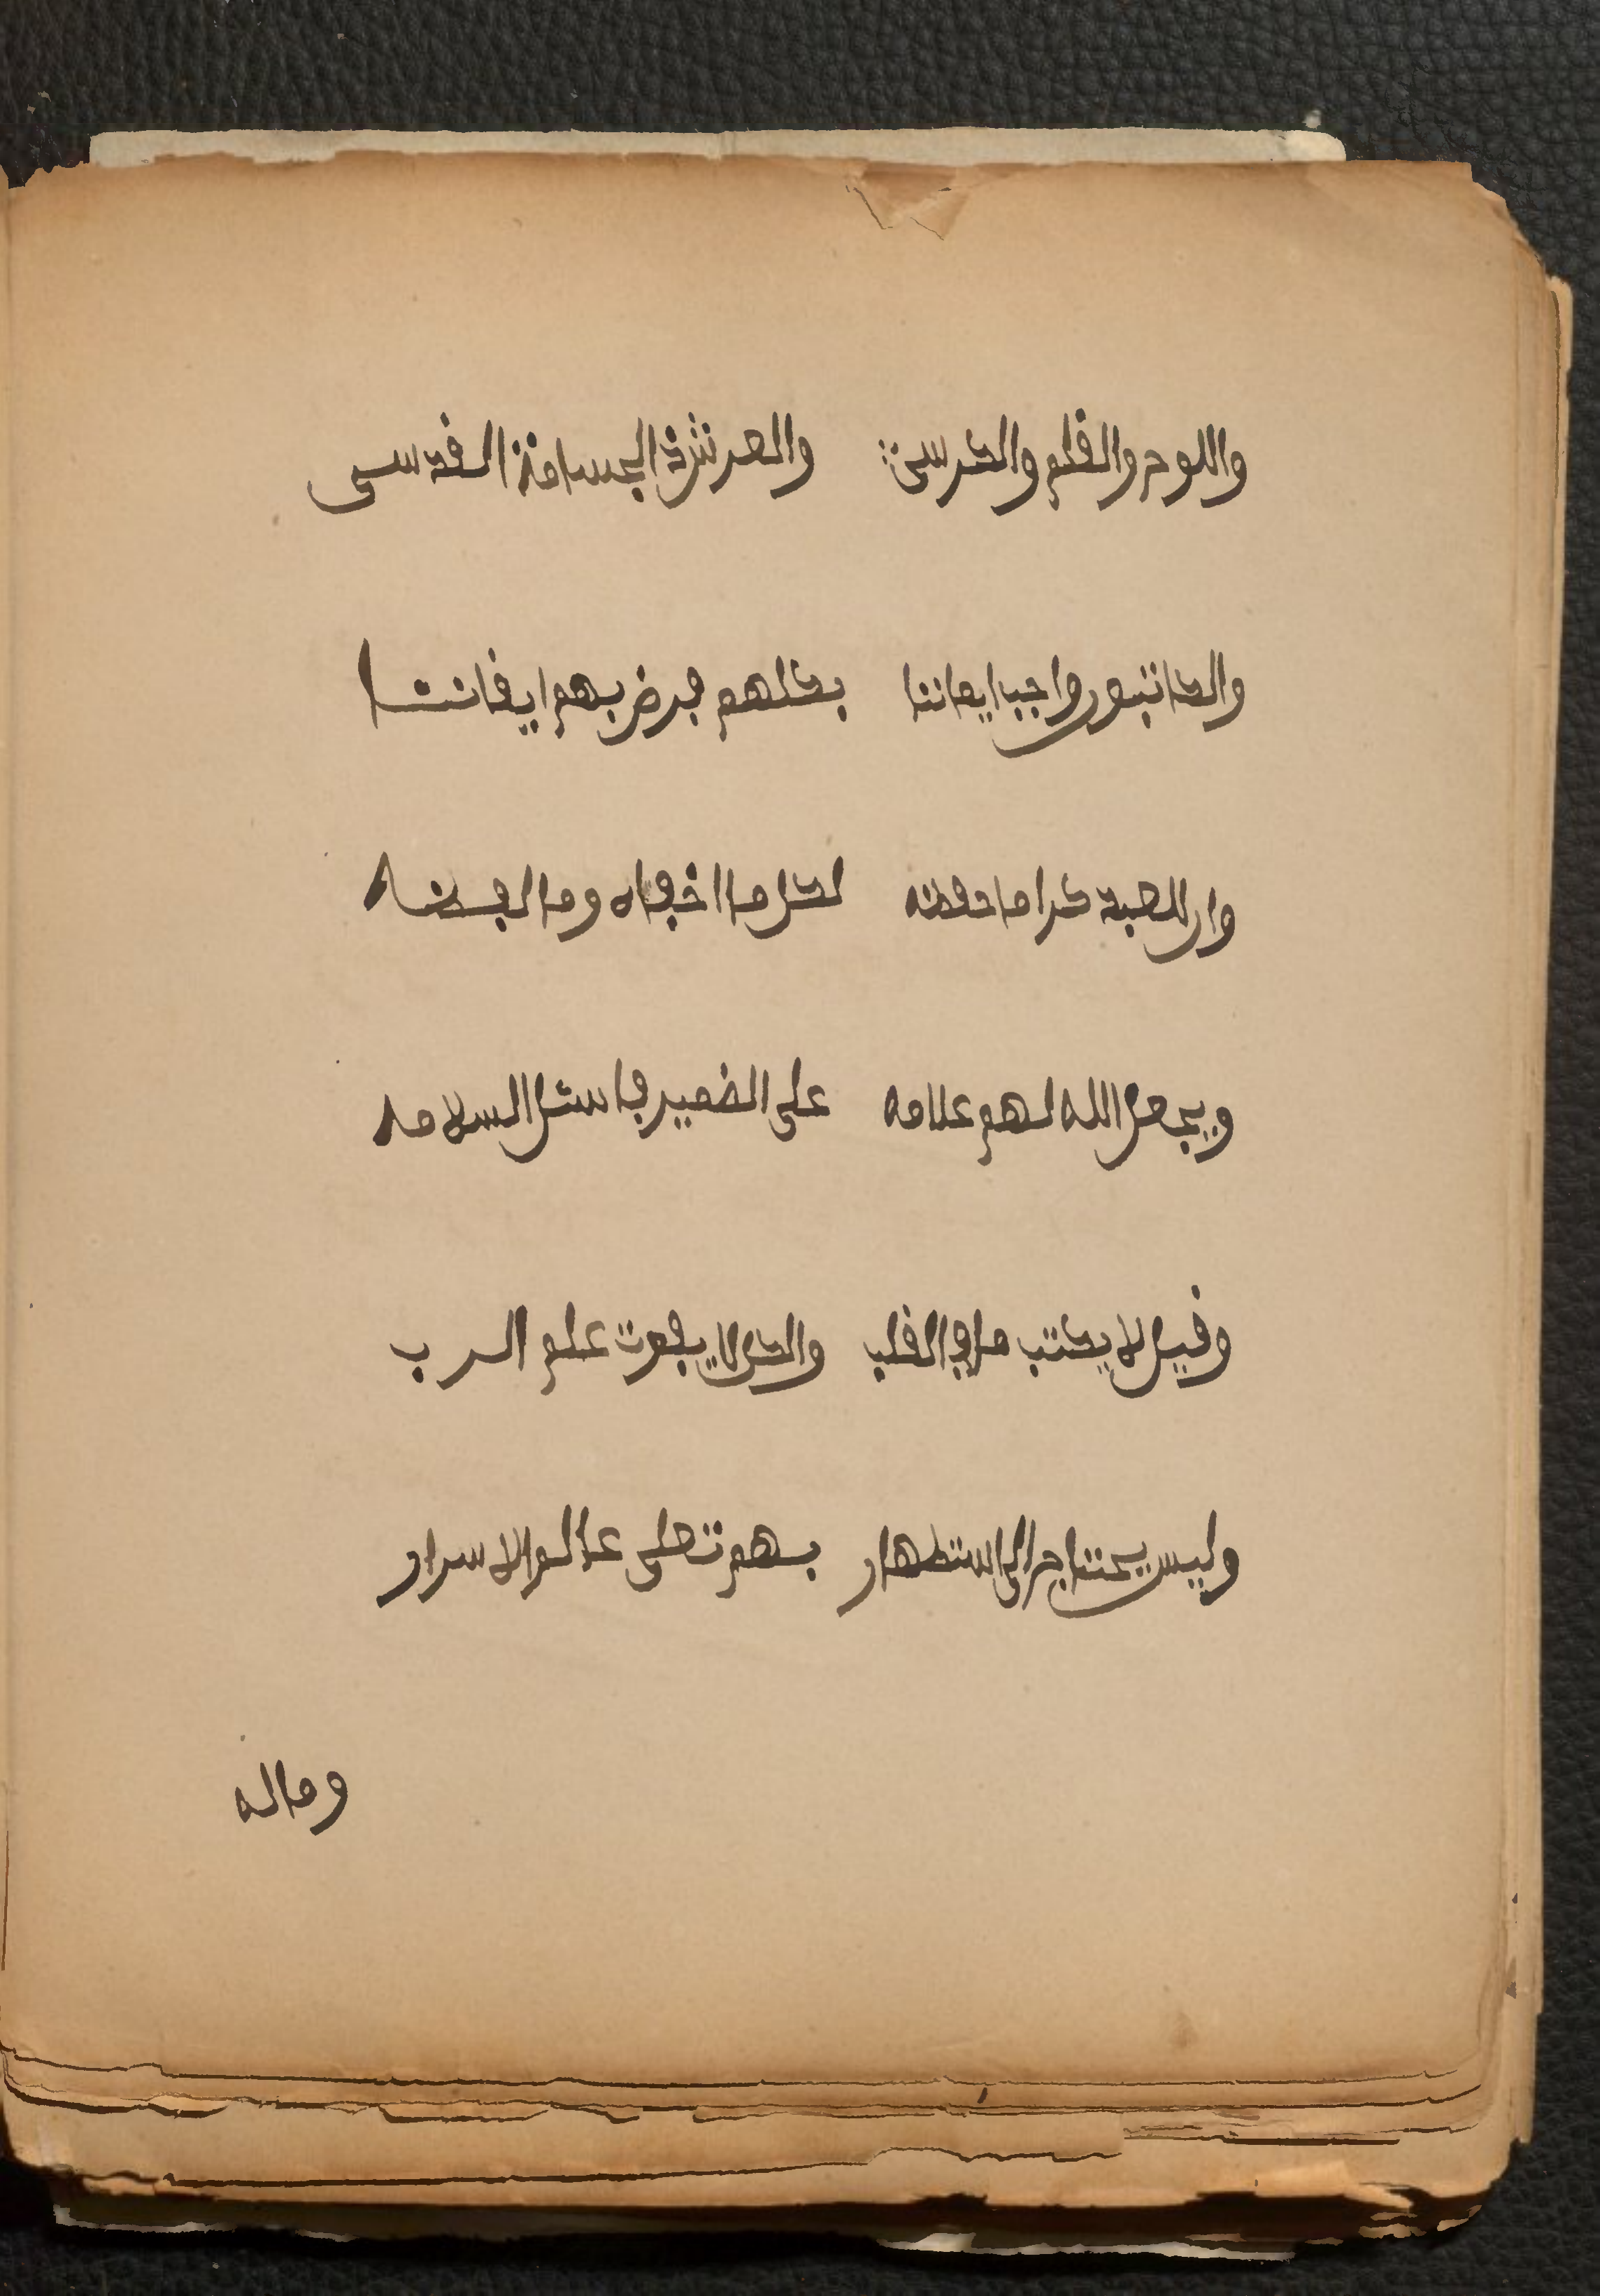 واللوح والقلم والكرسي والعرش ذي الجسامة القدسي
والكاتبون واجب ايماننا بكلهم فرض بهم ايقاننا
وان للعبد كراما حفظه لكل ما اخفاه وما لفظه
ويجعل الله لهم علامه على الضمير فاسئل السلامه
وقيل لا يكتب ما في القلب والكل لا يفوت علم الرب
وليس يحتاج الى استظهار بهم تعلى عالم الاسرار
وماله